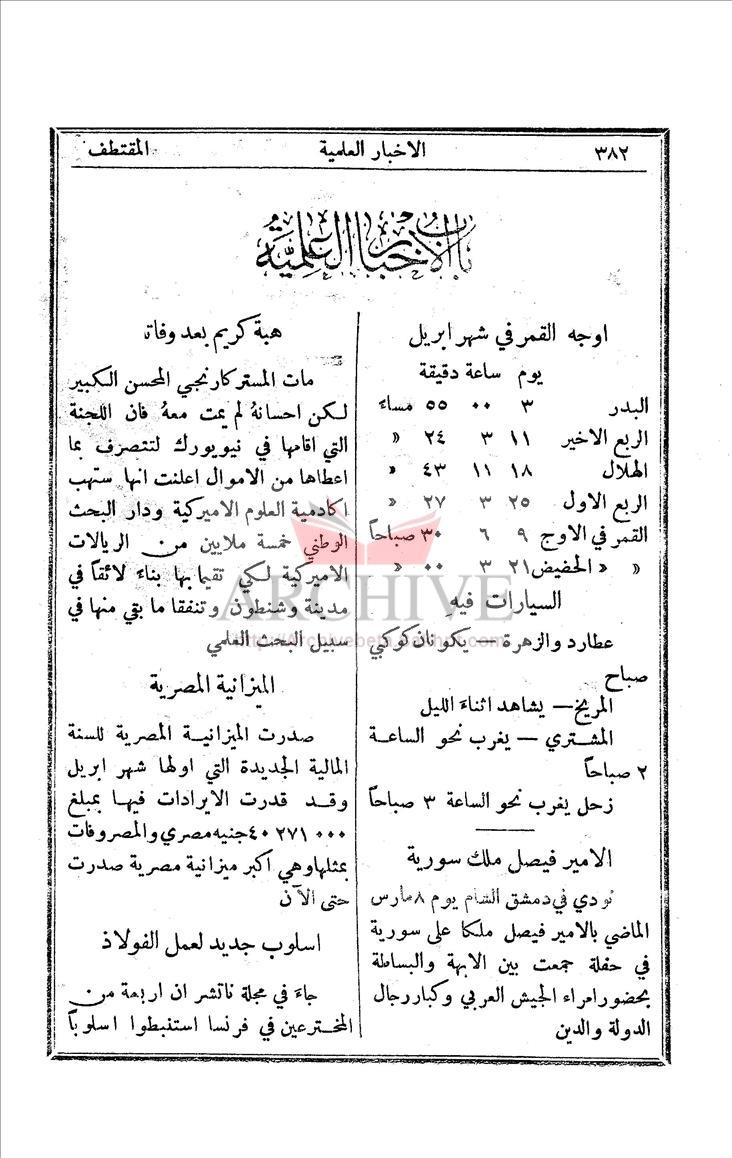 ٣٨٢
الاخبار العلمية
المقتطف
باب الاخبار العلمية
اوجه القمر في شهر ابريل
يوم ساعة دقيقة
البدر ٣ ٠٠ ٥٥ مساءً
الربع الاخير ١١ ٣ ٢٤ «
الهلال ١٨ ١١ ٤٣ «
الربع الاول ٢٥ ٣ ٢٧ «
القمر في الاوج ٩ ٦ ٣٠ صباحاً
« « الحضيض ٢١ ٣ ٠٠ «
السيارات فيه
عطارد والزهرة — يكونان كوكبي
صباح
المريخ — يشاهد اثناء الليل
المشتري — يغرب نحو الساعة
٢ صباحاً
زحل يغرب نحو الساعة ٣ صباحاً
الامير فيصل ملك سورية
نودي في دمشق الشام يوم ٨ مارس
الماضي بالامير فيصل ملكا على سورية
في حفلة جمعت بين الابهة والبساطة
بحضور امراء الجيش العربي وكبار رجال
الدولة والدين
هبة كريم بعد وفاته
مات المستر كارنجي المحسن الكبير
لكن احسانهُ لم يمت معهُ فان اللجنة
التي اقامها في نيويورك لتتصرف بما
اعطاها من الاموال اعلنت انها ستهب
اكادمية العلوم الاميركية ودار البحث
الوطني خمسة ملايين من الريالات
الاميركية لكي تقيما بها بناءً لائقاً في
مدينة وشنطون وتنفقا ما بقي منها في
سبيل البحث العلمي
الميزانية المصرية
صدرت الميزانية المصرية للسنة
المالية الجديدة التي اولها شهر ابريل
وقد قدرت الايرادات فيها بمبلغ
٤٠ ٢٧١ ٠٠٠ جنيه مصري والمصروفات
بمثلها وهي اكبر ميزانية مصرية صدرت
حتى الآن
اسلوب جديد لعمل الفولاذ
جاءَ في مجلة ناتشر ان اربعة من
المخترعين في فرنسا استنبطوا اسلوباً
ARCHIVE